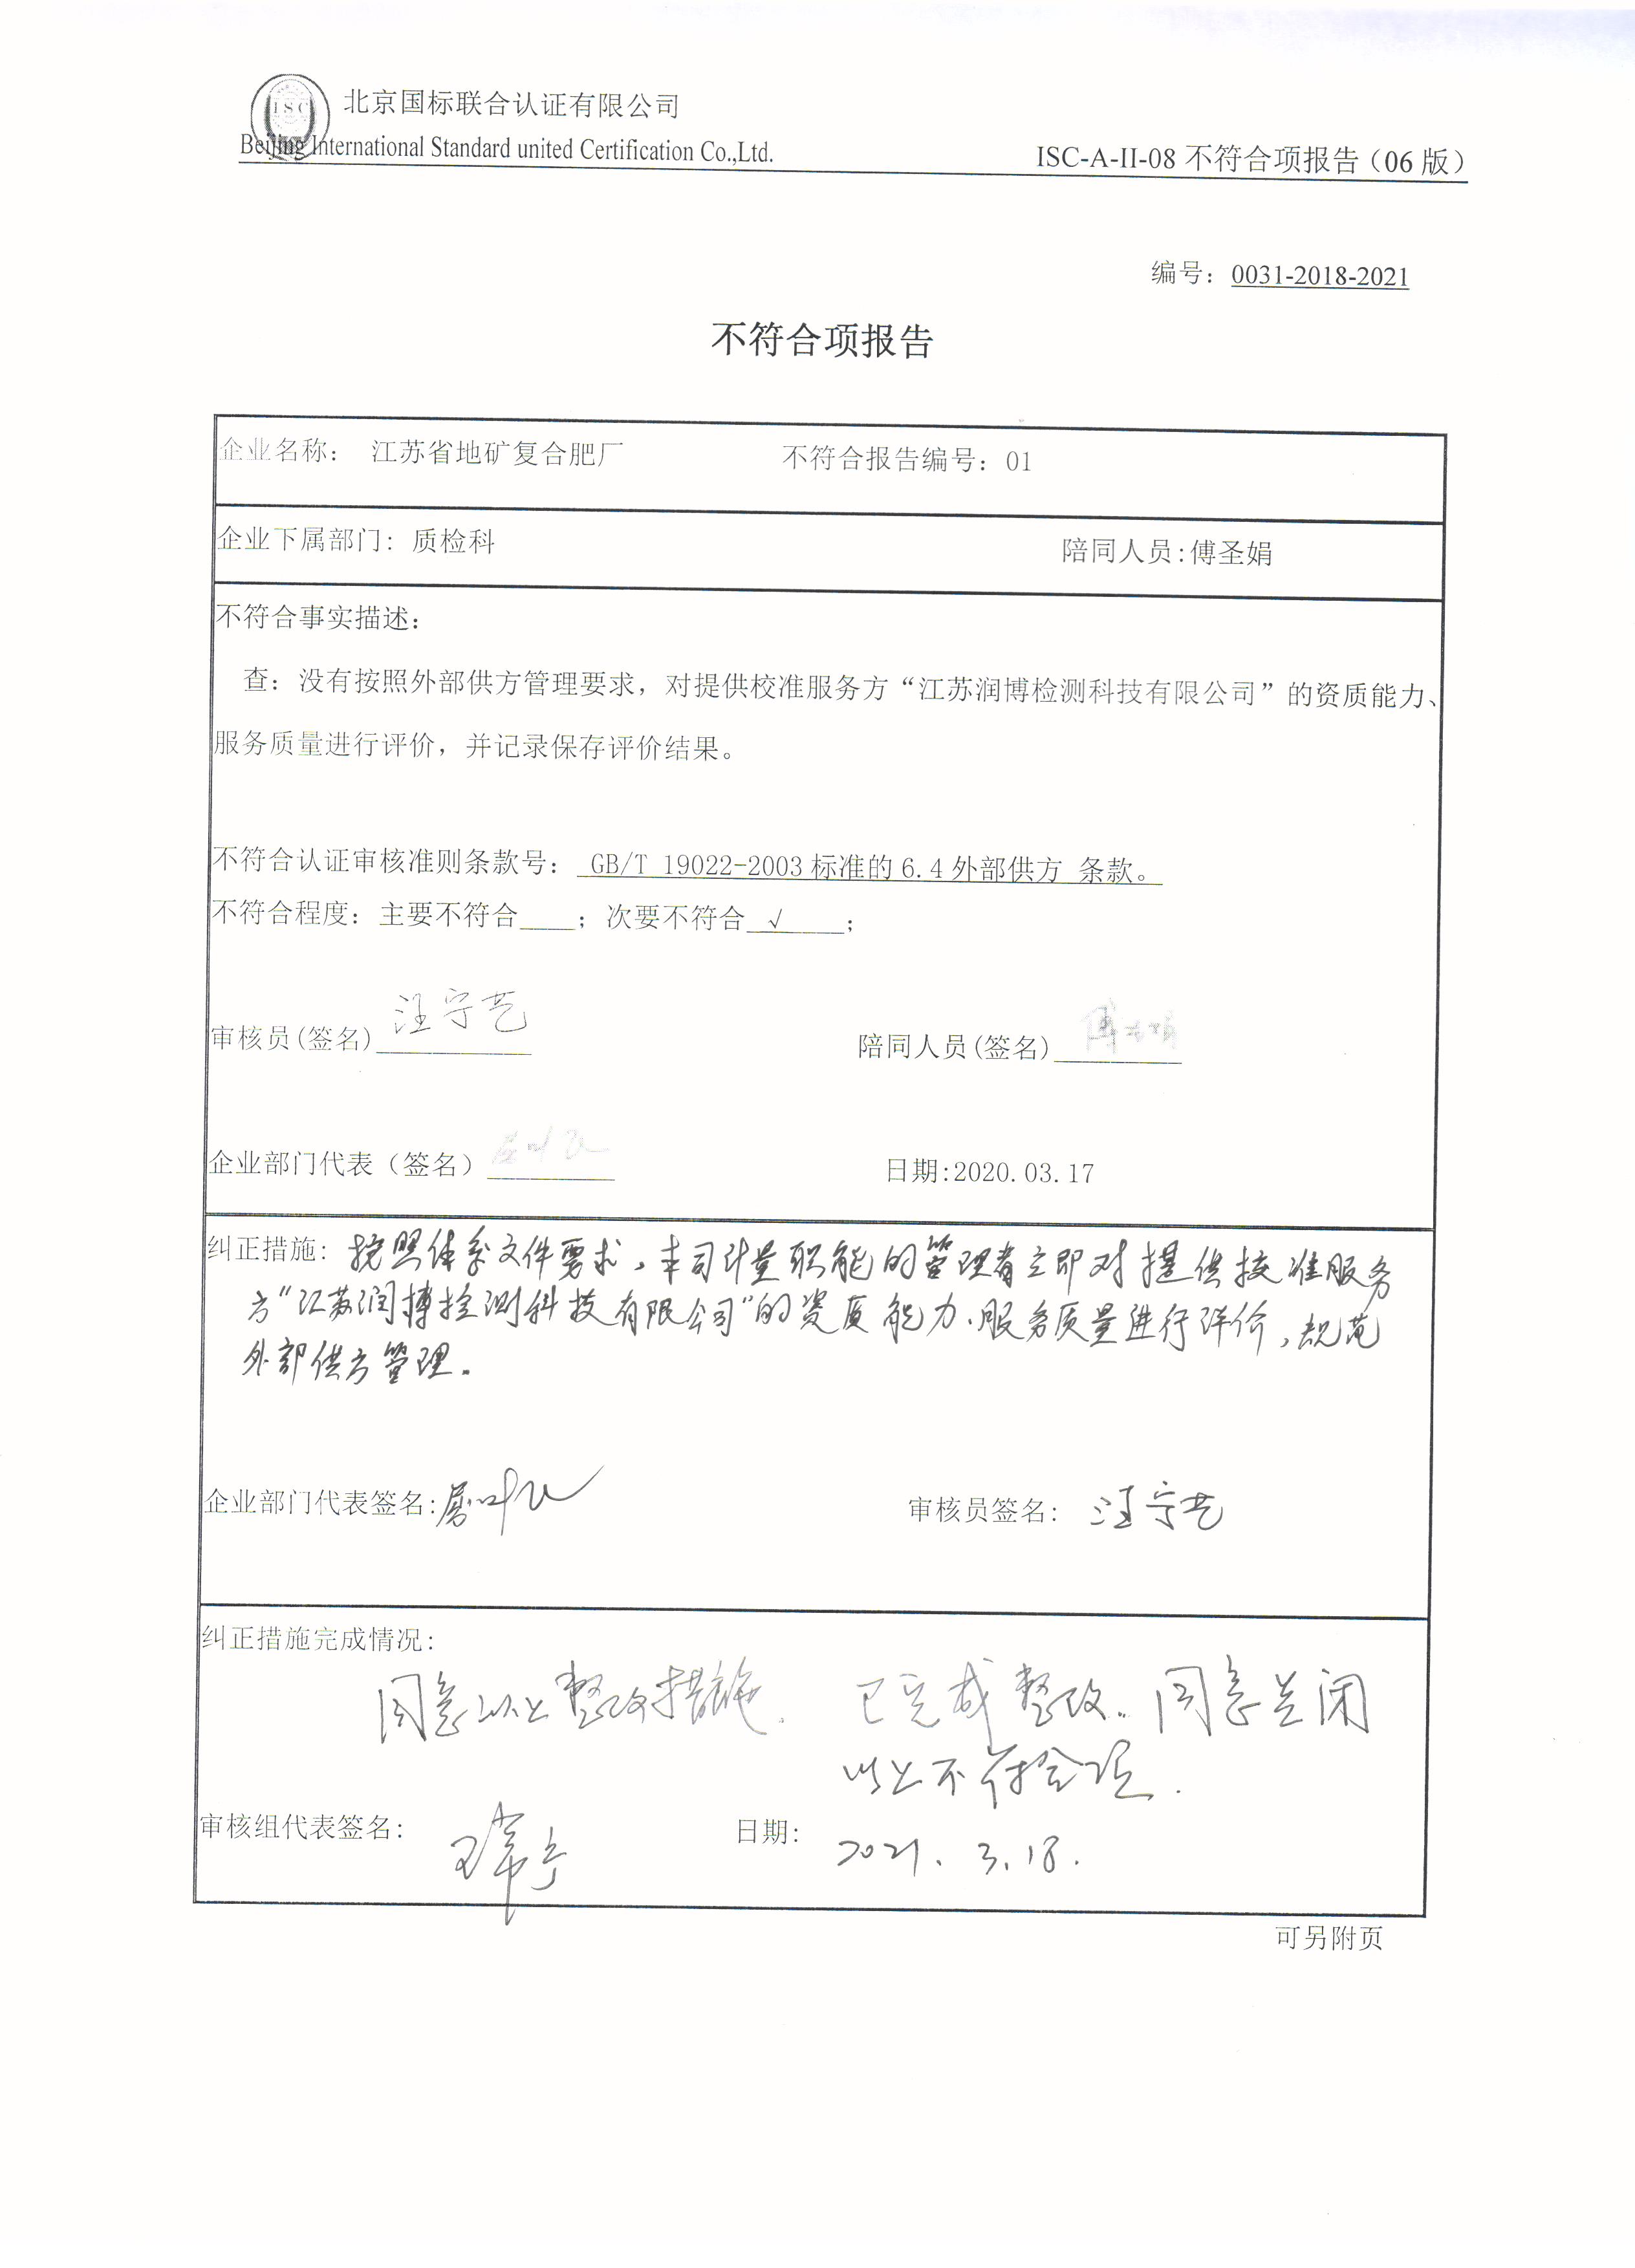 ISC
北京国标联合认证有限公司
Beijing International Standard united Certification Co.,Ltd.
ISC-A-II-08 不符合项报告（06 版）
编号：0031-2018-2021
不符合项报告
企业名称： 江苏省地矿复合肥厂 不符合报告编号：01
企业下属部门：质检科 陪同人员:傅圣娟
不符合事实描述：
查：没有按照外部供方管理要求，对提供校准服务方“江苏润博检测科技有限公司”的资质能力、
服务质量进行评价，并记录保存评价结果。
不符合认证审核准则条款号： GB/T 19022-2003 标准的 6.4 外部供方 条款。
不符合程度：主要不符合____；次要不符合 √ ；
审核员(签名) 汪宁艺 陪同人员(签名) 傅圣娟
企业部门代表（签名） 日期:2020.03.17
纠正措施：按照体系文件要求，本司计量职能的管理者立即对提供校准服务
方“江苏润博检测科技有限公司”的资质能力、服务质量进行评价，规范
外部供方管理。
企业部门代表签名: 审核员签名： 汪宁艺
纠正措施完成情况：
同意以上整改措施。 已完成整改。同意关闭
以上不符合项.
审核组代表签名： 日期： 2021.3.18.
可另附页